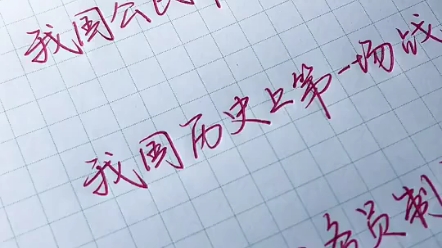 我国公民
我国历史上第一场战
务员制